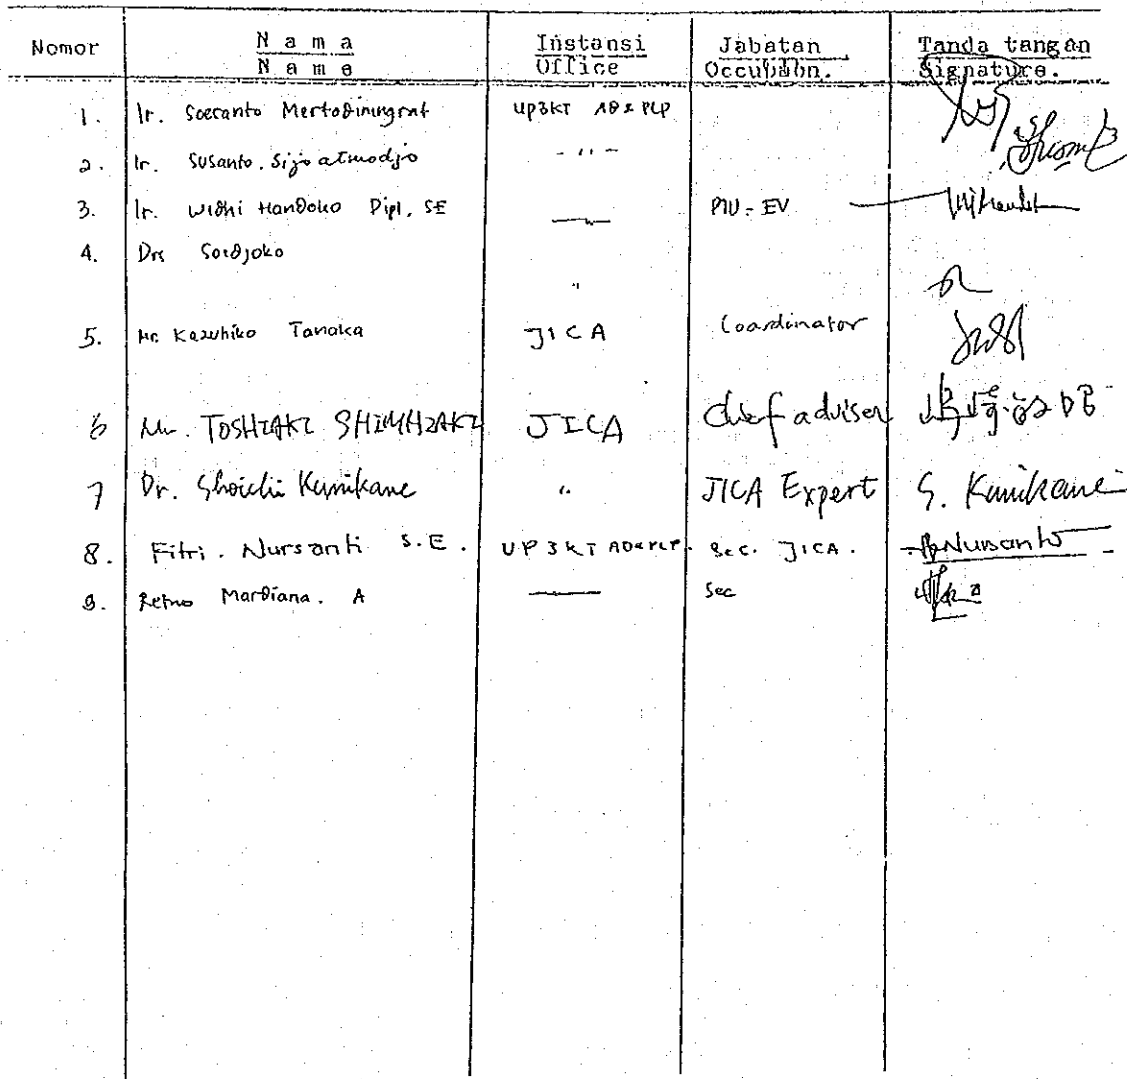 Nomor N a m a Instansi Jabatan Tanda tangan
N a m e Office Occupatn. Signature.
1. Ir. Soeranto Mertodiningrat UP3KT AB & PLP
2. Ir. Susanto. Sijoatmodjo - " -
3. Ir. Widhi Handoko Dipl. SE PIU - EV
4. Drs Soedjoko "
5. Mr. Kazuhiko Tanaka JICA Coordinator
6 Mr. TOSHIAKI SHIMHZAKI JICA Chief adviser
7 Dr. Shoichi Kunikane " JICA Expert S. Kunikane
8. Fitri. Nursanti S.E. UP3KT AB & PLP. Sec. JICA.
9. Retno Mardiana. A Sec